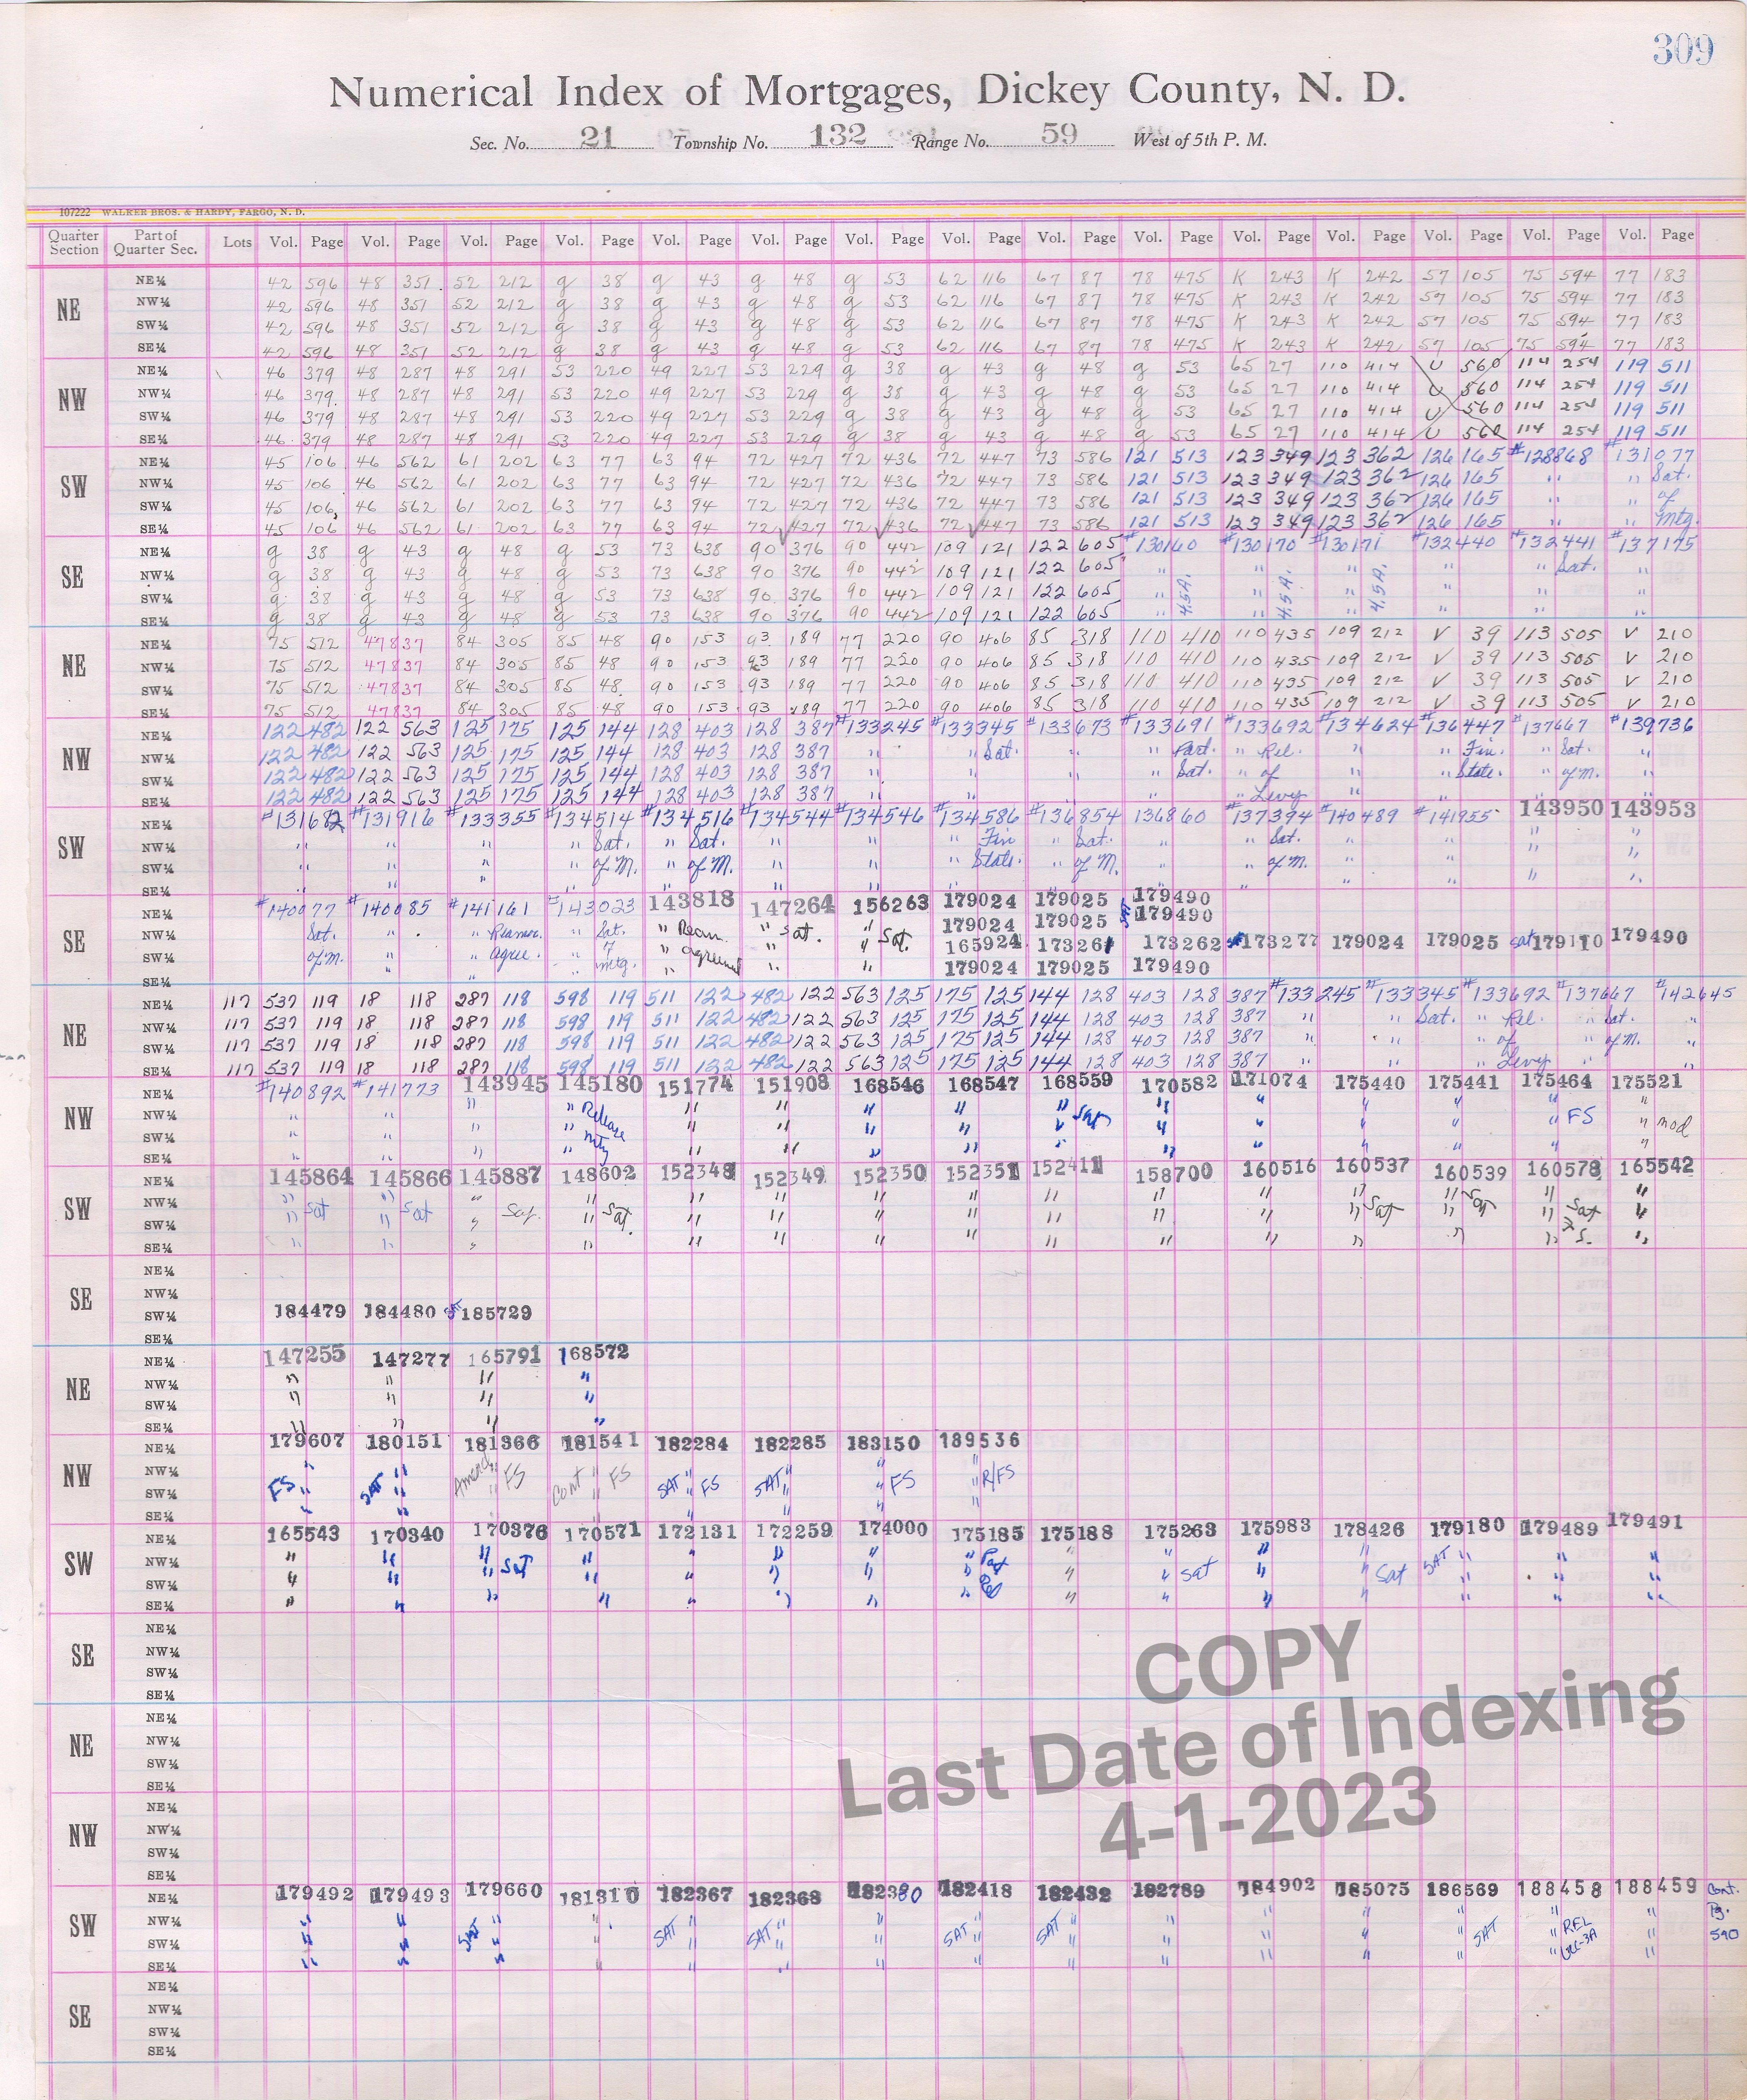 309
Numerical Index of Mortgages, Dickey County, N. D.
Sec. No. 21 Township No. 132 Range No. 59 West of 5th P. M.
107222 WALKER BROS. & HARDY, FARGO, N. D.
Quarter Section Part of Quarter Sec. Lots Vol. Page Vol. Page Vol. Page Vol. Page Vol. Page Vol. Page Vol. Page Vol. Page Vol. Page Vol. Page Vol. Page Vol. Page Vol. Page Vol. Page Vol. Page
NE
NE¼ 42 596 48 351 52 212 g 38 g 43 g 48 g 53 62 116 67 87 78 475 K 243 K 242 57 105 75 594 77 183
NW¼ 42 596 48 351 52 212 g 38 g 43 g 48 g 53 62 116 67 87 78 475 K 243 K 242 57 105 75 594 77 183
SW¼ 42 596 48 351 52 212 g 38 g 43 g 48 g 53 62 116 67 87 78 475 K 243 K 242 57 105 75 594 77 183
SE¼ 42 596 48 351 52 212 g 38 g 43 g 48 g 53 62 116 67 87 78 475 K 243 K 242 57 105 75 594 77 183
NW
NE¼ 46 379 48 287 48 291 53 220 49 227 53 229 g 38 g 43 g 48 g 53 65 27 110 414 U 560 114 254 119 511
NW¼ 46 379 48 287 48 291 53 220 49 227 53 229 g 38 g 43 g 48 g 53 65 27 110 414 U 560 114 254 119 511
SW¼ 46 379 48 287 48 291 53 220 49 227 53 229 g 38 g 43 g 48 g 53 65 27 110 414 U 560 114 254 119 511
SE¼ 46 379 48 287 48 291 53 220 49 227 53 229 g 38 g 43 g 48 g 53 65 27 110 414 U 560 114 254 119 511
SW
NE¼ 45 106 46 562 61 202 63 77 63 94 72 427 72 436 72 447 73 586 121 513 123 349 123 362 126 165 #128868 #131077
NW¼ 45 106 46 562 61 202 63 77 63 94 72 427 72 436 72 447 73 586 121 513 123 349 123 362 126 165 " " Sat.
SW¼ 45 106 46 562 61 202 63 77 63 94 72 427 72 436 72 447 73 586 121 513 123 349 123 362 126 165 " " of
SE¼ 45 106 46 562 61 202 63 77 63 94 72 427 72 436 72 447 73 586 121 513 123 349 123 362 126 165 " " Mtg.
SE
NE¼ g 38 g 43 g 48 g 53 73 638 90 376 90 442 109 121 122 605 #130160 #130170 #130171 #132440 #132441 #137175
NW¼ g 38 g 43 g 48 g 53 73 638 90 376 90 442 109 121 122 605 " " " " " Sat. "
SW¼ g 38 g 43 g 48 g 53 73 638 90 376 90 442 109 121 122 605 " 4.5A. " 4.5A. " 4.5A. " " "
SE¼ g 38 g 43 g 48 g 53 73 638 90 376 90 442 109 121 122 605 " " " " " "
NE
NE¼ 75 512 47837 84 305 85 48 90 153 93 189 77 220 90 406 85 318 110 410 110 435 109 212 V 39 113 505 V 210
NW¼ 75 512 47837 84 305 85 48 90 153 93 189 77 220 90 406 85 318 110 410 110 435 109 212 V 39 113 505 V 210
SW¼ 75 512 47837 84 305 85 48 90 153 93 189 77 220 90 406 85 318 110 410 110 435 109 212 V 39 113 505 V 210
SE¼ 75 512 47837 84 305 85 48 90 153 93 189 77 220 90 406 85 318 110 410 110 435 109 212 V 39 113 505 V 210
NW
NE¼ 122 482 122 563 125 175 125 144 128 403 128 387 #133245 #133345 #133673 #133691 #133692 #134624 #136447 #137667 #139736
NW¼ 122 482 122 563 125 175 125 144 128 403 128 387 " " Sat. " " Part. " Rel. " " Fin. " Sat. "
SW¼ 122 482 122 563 125 175 125 144 128 403 128 387 " " " " Sat. " of " " State. " of M. "
SE¼ 122 482 122 563 125 175 125 144 128 403 128 387 " " " " " Levy " " " "
SW
NE¼ #131682 #131916 #133355 #134514 #134516 #134544 #134546 #134586 #136854 136860 #137394 #140489 #141955 143950 143953
NW¼ " " " " Sat. " Sat. " " " Fin " Sat. " " Sat. " " " "
SW¼ " " " " of M. " of M. " " " State. " of M. " " of M. " " " "
SE¼ " " " " " " " " " " " " " " "
SE
NE¼ #140077 #140085 #141161 #143023 143818 147264 156263 179024 179025 SAT 179490
NW¼ Sat. " " Reamor. " Sat. " Ream. " Sat. " Sat. 179024 179025 179490
SW¼ of M. " " agree. " of mtg. " agreement " " 165924 173261 173262 173277 179024 179025 sat 179110 179490
SE¼ 179024 179025 179490
NE
NE¼ 117 537 119 18 118 287 118 598 119 511 122 482 122 563 125 175 125 144 128 403 128 387 #133245 #133345 #133692 #137667 #142645
NW¼ 117 537 119 18 118 287 118 598 119 511 122 482 122 563 125 175 125 144 128 403 128 387 " " Sat. " Rel. " Sat. "
SW¼ 117 537 119 18 118 287 118 598 119 511 122 482 122 563 125 175 125 144 128 403 128 387 " " " of " of M. "
SE¼ 117 537 119 18 118 287 118 598 119 511 122 482 122 563 125 175 125 144 128 403 128 387 " " " Levy " "
NW
NE¼ #140892 #141773 143945 145180 151774 151908 168546 168547 168559 170582 171074 175440 175441 175464 175521
NW¼ " " " " Release " " " " " Sat " " " " " FS "
SW¼ " " " " Mtg " " " " " " " " " " " mod
SE¼ " " " " " " " " " " " " " "
SW
NE¼ 145864 145866 145887 148602 152348 152349 152350 152351 152411 158700 160516 160537 160539 160578 165542
NW¼ " " " " " " " " " " " " " Sat " "
SW¼ " Sat " Sat " Sat. " Sat. " " " " " " " " Sat " " Sat "
SE¼ " " " " " " " " " " " " " " "
SE
NE¼
NW¼
SW¼ 184479 184480 SAT 185729
SE¼
NE
NE¼ 147255 147277 165791 168572
NW¼ " " " "
SW¼ " " " "
SE¼ " " " "
NW
NE¼ 179607 180151 181366 181541 182284 182285 183150 189536
NW¼ " " " " " " " "
SW¼ FS " SAT " Amend " FS Cont " FS SAT " FS SAT " " FS " R/FS
SE¼ " " " " " " " "
SW
NE¼ 165543 170340 170376 170571 172131 172259 174000 175185 175188 175263 175983 178426 179180 179489 179491
NW¼ " " " Sat " " " " " Part " " " " SAT " " "
SW¼ " " " " " " " " Rel " " Sat " " Sat " " "
SE¼ " " " " " " " " " " " " " " "
SE
NE¼
NW¼
SW¼
SE¼
NE
NE¼
NW¼
SW¼
SE¼
NW
NE¼
NW¼
SW¼
SE¼
SW
NE¼ 179492 179493 179660 181310 182367 182368 182380 182418 182432 182789 184902 185075 186569 188458 188459 Cont.
NW¼ " " " " " " " " " " " " " " REL " Pg.
SW¼ " " SAT " " SAT " SAT " " SAT " SAT " " " " " SAT " UCC-3A " 590
SE¼ " " " " " " " " " " " " " " "
SE
NE¼
NW¼
SW¼
SE¼
COPY
Last Date of Indexing
4-1-2023